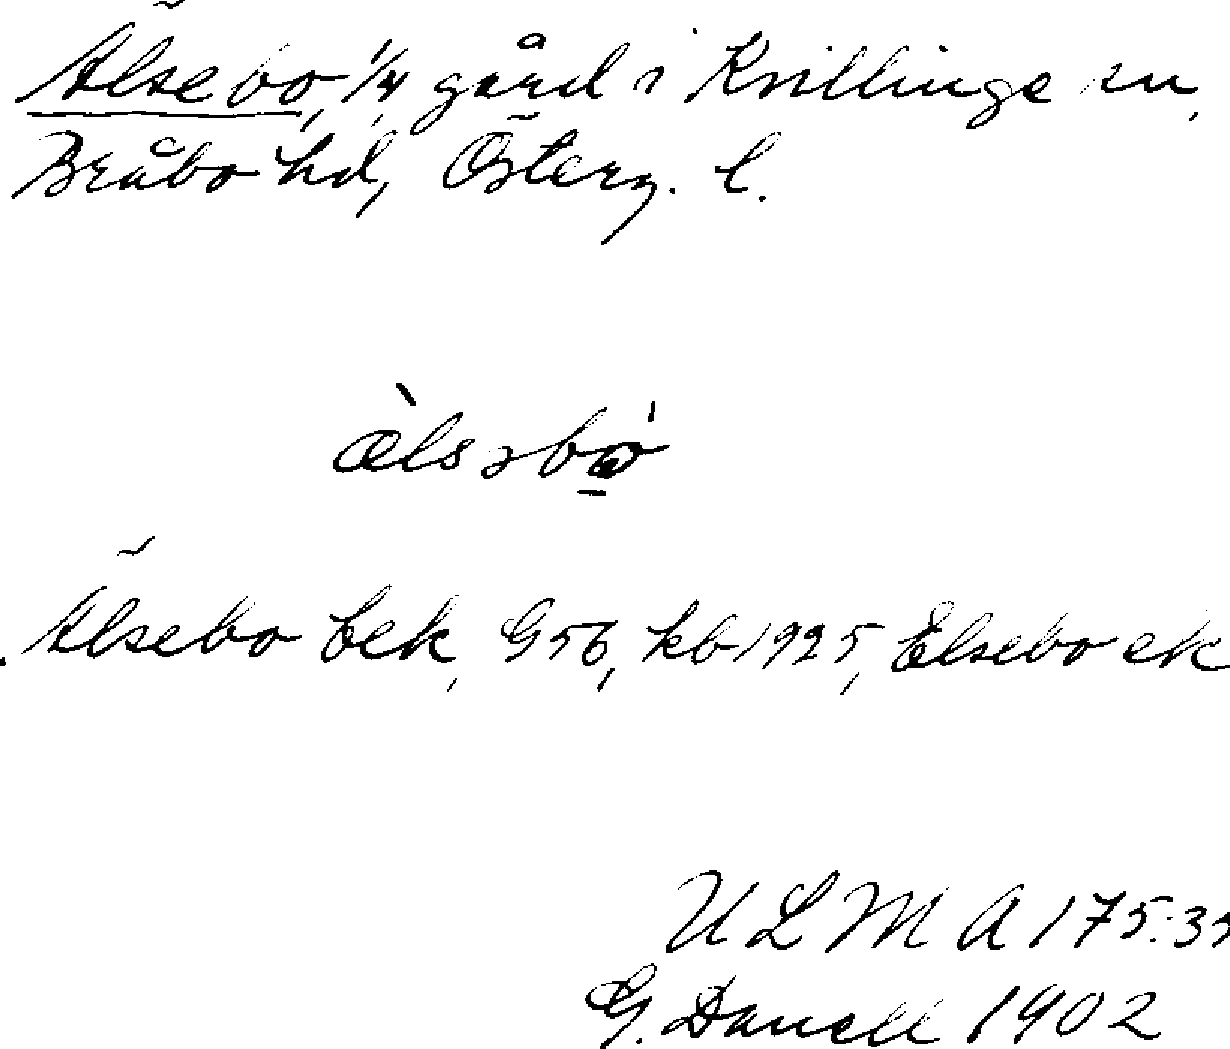 Älsebo, 1/4 gård i Kvillinge sn,
Bråbo hd, Österg. l.
æ̀lsəbω̇
Älsebo bek, G56, kb 1925, Elsebo ek
ULMA 175:35
G. Danell 1902